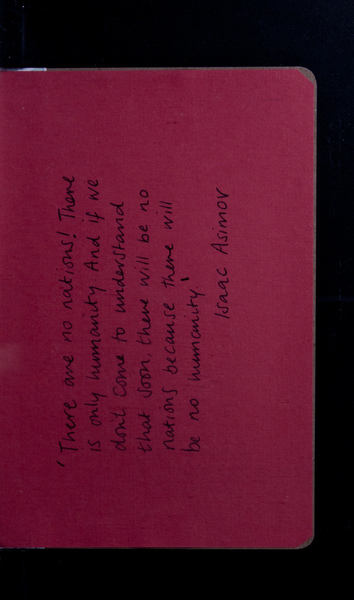 'There are no nations! There
is only humanity And if we
don't come to understand
that soon, there will be no
nations because there will
be no humanity'
Isaac Asimov